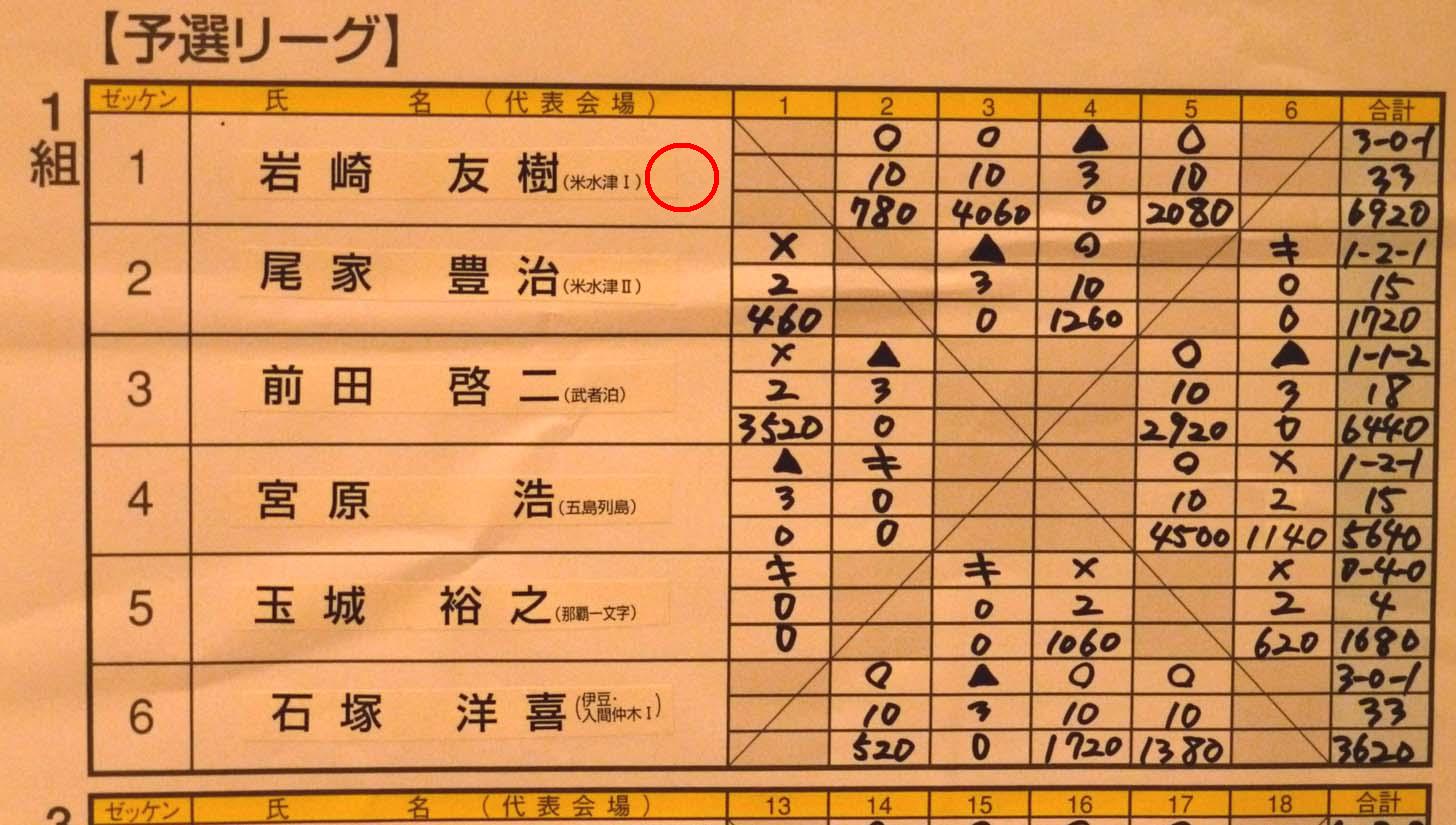 【予選リーグ】
1組
ゼッケン 氏 名 (代表会場) 1 2 3 4 5 6 合計
1 岩崎 友樹 (米水津Ⅰ)
○ ○ ▲ ○ 3-0-1
10 10 3 10 33
780 4060 0 2080 6920
2 尾家 豊治 (米水津Ⅱ)
× ▲ ○ キ 1-2-1
2 3 10 0 15
460 0 1260 0 1720
3 前田 啓二 (武者泊)
× ▲ ○ ▲ 1-1-2
2 3 10 3 18
3520 0 2920 0 6440
4 宮原 浩 (五島列島)
▲ キ ○ × 1-2-1
3 0 10 2 15
0 0 4500 1140 5640
5 玉城 裕之 (那覇一文字)
キ キ × × 0-4-0
0 0 2 2 4
0 0 1060 620 1680
6 石塚 洋喜 (伊豆・入間仲木Ⅰ)
○ ▲ ○ ○ 3-0-1
10 3 10 10 33
520 0 1720 1380 3620
ゼッケン 氏 名 (代表会場) 13 14 15 16 17 18 合計